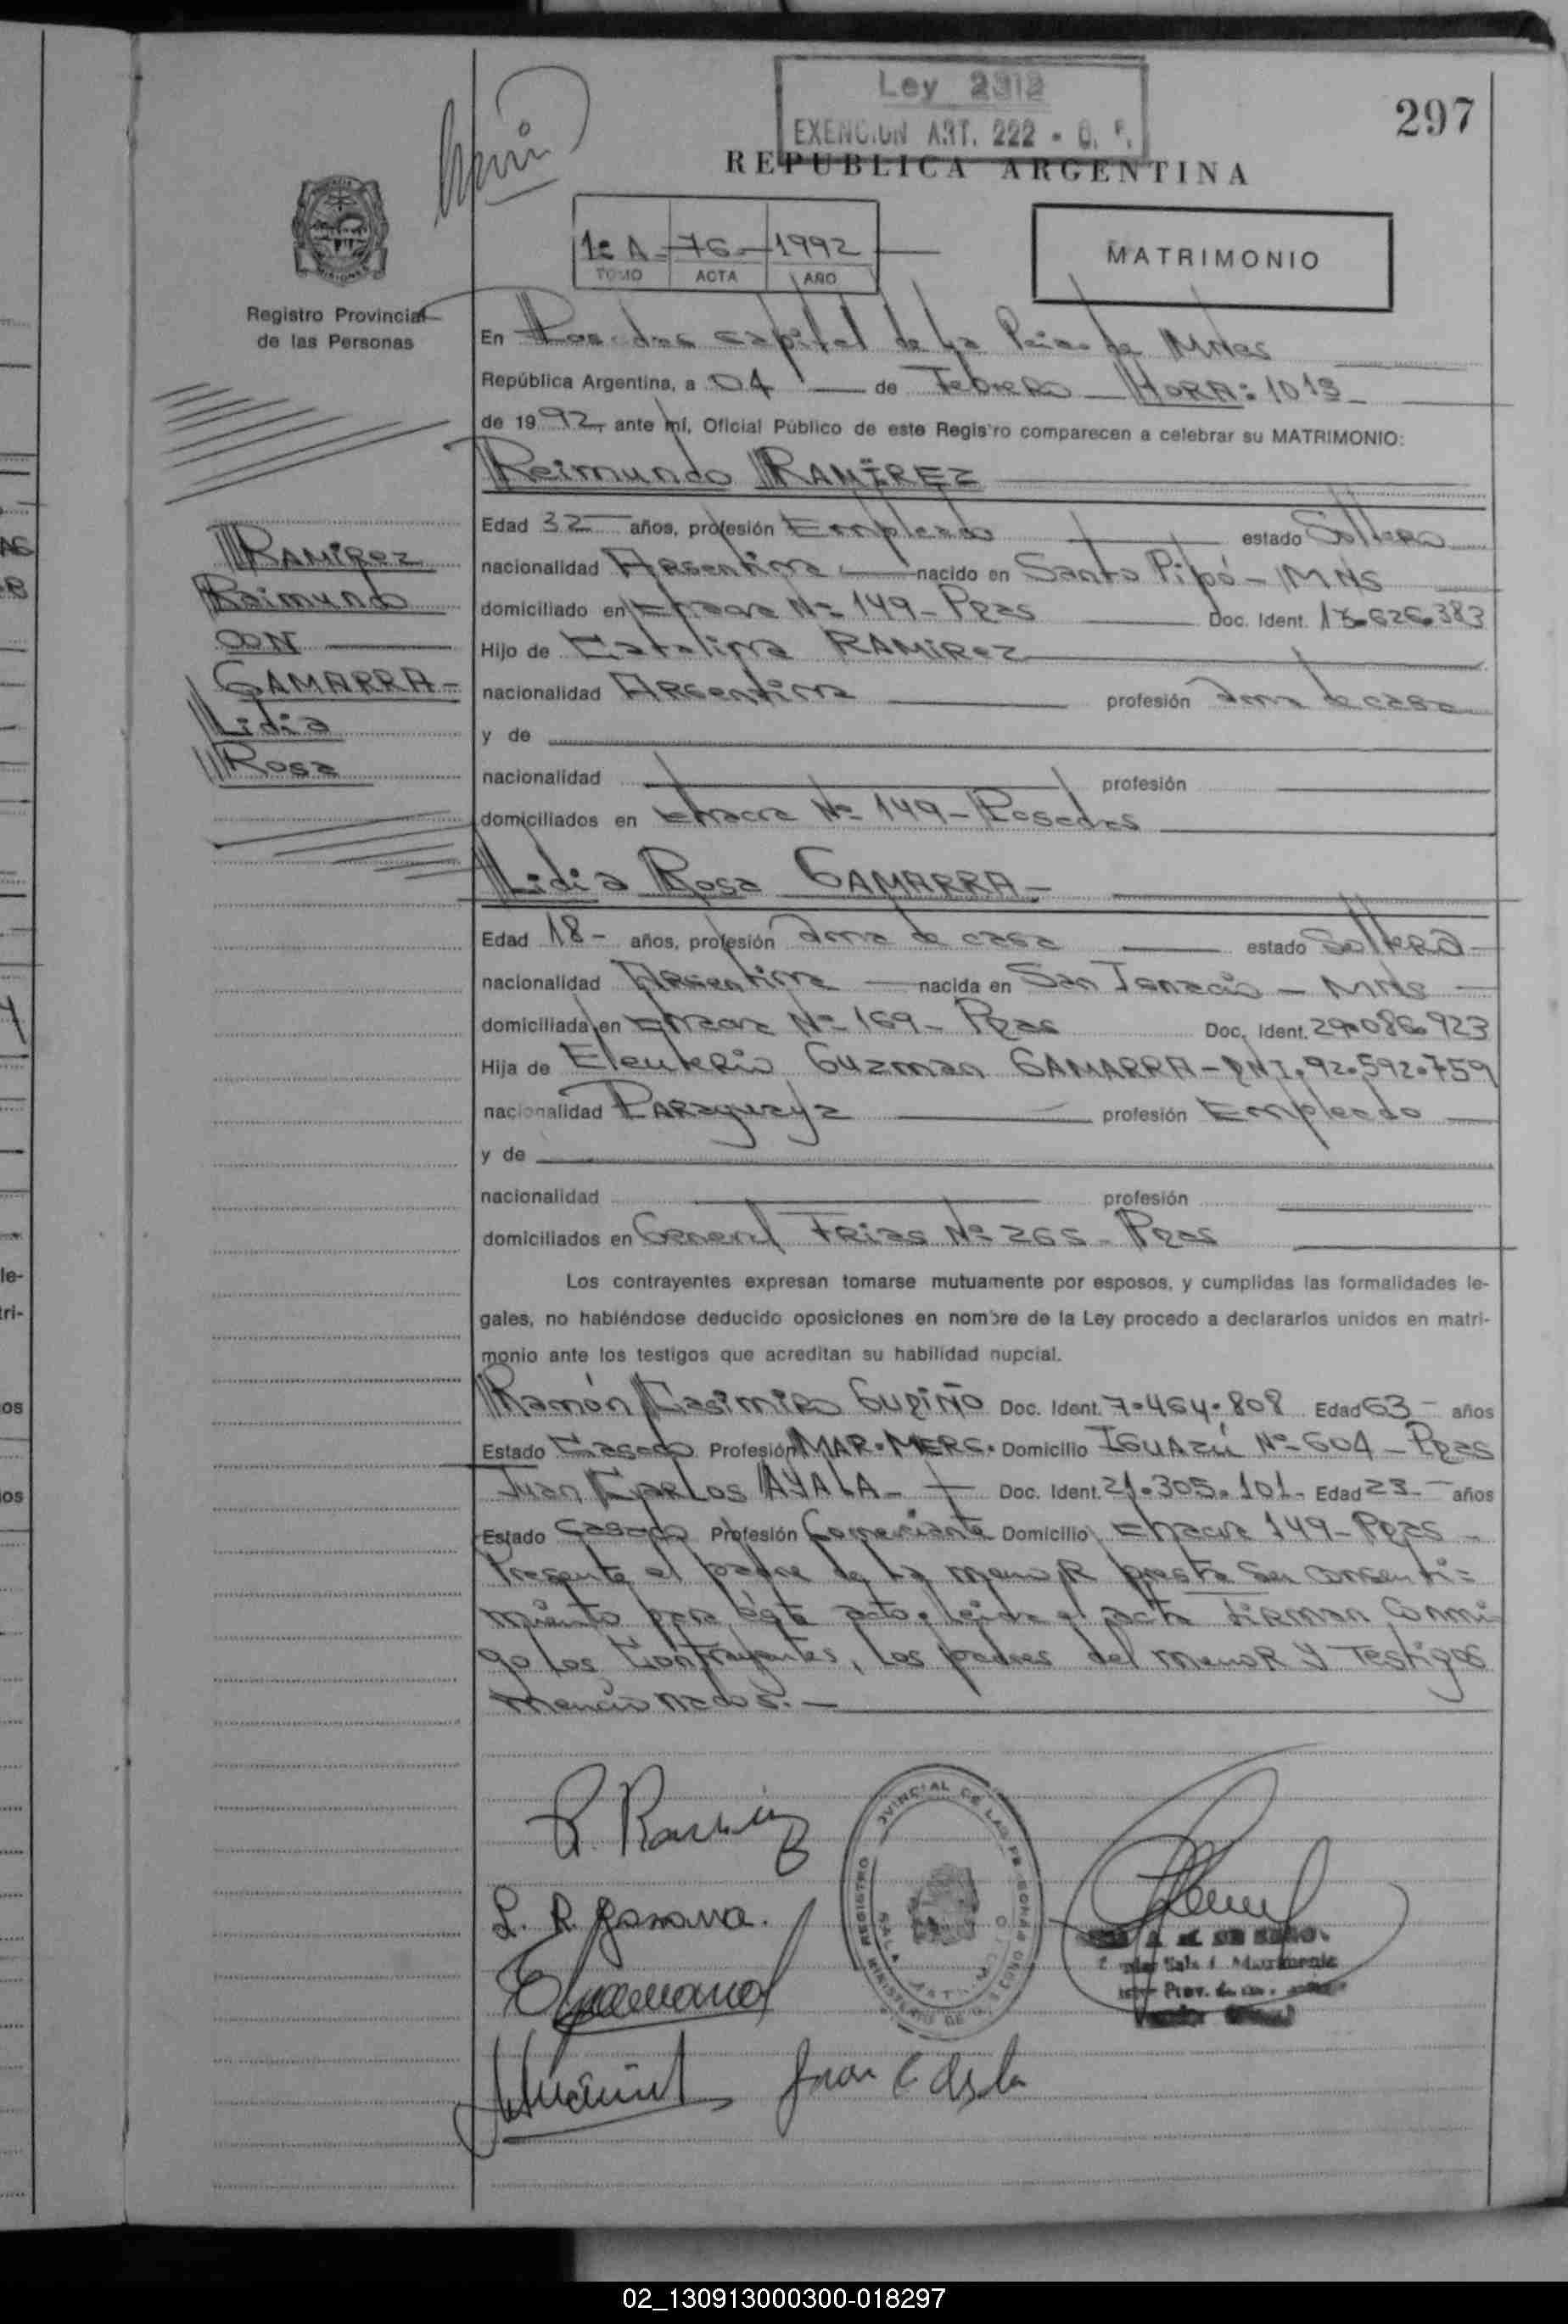 Ley 2312
EXENCION ART. 222 - C. F.
297
REPUBLICA ARGENTINA
1º A - 76 - 1992
TOMO ACTA AÑO
MATRIMONIO
Registro Provincial
de las Personas
En Posadas capital de la Pcia de MNes
República Argentina, a 04 de Febrero HORA: 1015
de 1992, ante mí, Oficial Público de este Registro comparecen a celebrar su MATRIMONIO:
Reimundo RAMIREZ
Edad 32 años, profesión Empleado estado Soltero
nacionalidad Argentina nacido en Santo Pipó - MNS
domiciliado en Chacra Nº 149 - Pdas Doc. Ident.
Hijo de Catalina RAMIREZ
nacionalidad Argentina profesión ama de casa
y de
nacionalidad profesión
domiciliados en Chacra Nº 149 - Posadas
RAMIREZ
Raimundo
CON
GAMARRA -
Lidia
Rosa
Lidia Rosa GAMARRA -
Edad 18 - años, profesión ama de casa estado Soltera
nacionalidad Argentina nacida en San Ignacio - MNS
domiciliada en Chacra Nº 169 - Pdas Doc. Ident.
Hija de Eleuterio Guzman GAMARRA - DNI. 92.592.759
nacionalidad Paraguaya profesión Empleado
y de
nacionalidad profesión
domiciliados en General Frias Nº 265 - Pdas
Los contrayentes expresan tomarse mutuamente por esposos, y cumplidas las formalidades le-
gales, no habiéndose deducido oposiciones en nombre de la Ley procedo a declararlos unidos en matri-
monio ante los testigos que acreditan su habilidad nupcial.
Ramón Casimiro Doc. Ident. 7.464.808 Edad 63 - años
Estado Casado Profesión MAR. MERC. Domicilio IGUAZÚ Nº 604 - Pdas
Juan Carlos AYALA - Doc. Ident. 21.305.101 - Edad 23 - años
Estado Casado Profesión Comerciante Domicilio Chacra 149 - Pdas -
Presente el padre de la menor presta su consenti=
miento para éste acto. Leida el acta firman conmi
go los contrayentes, los padres del menor y testigos
mencionados. -
R. Ramirez
L. R. Gamarra.
Juan C Ayala
02_130913000300-018297